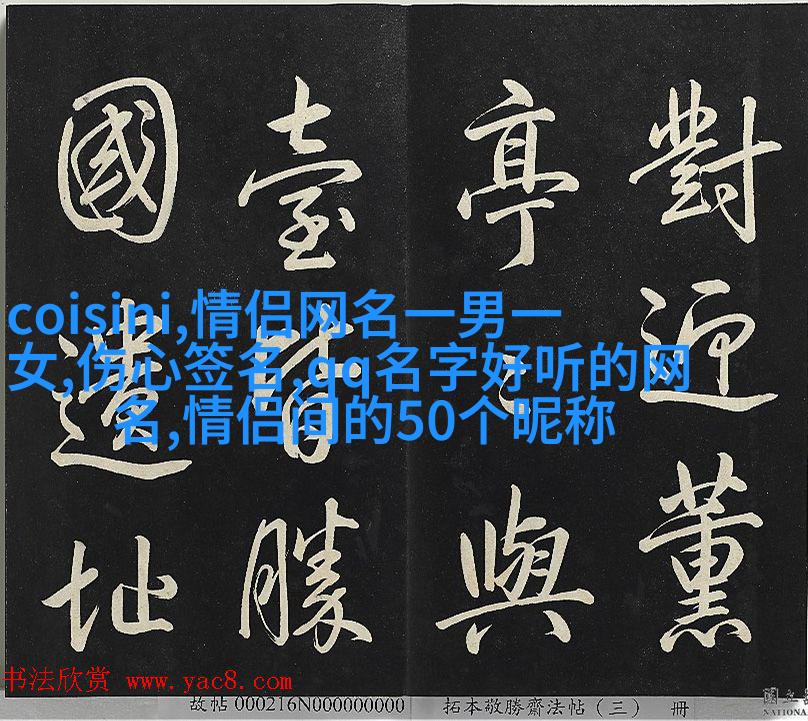 對迎薰
亭々與
臺皆勝
國遺址
coisini,情侣网名一男一
女,伤心签名,qq名字好听的网
名,情侣间的50个昵称
书法欣赏 www.yac8.com
故帖 000216N000000000 拓本敬勝齋法帖（三） 册